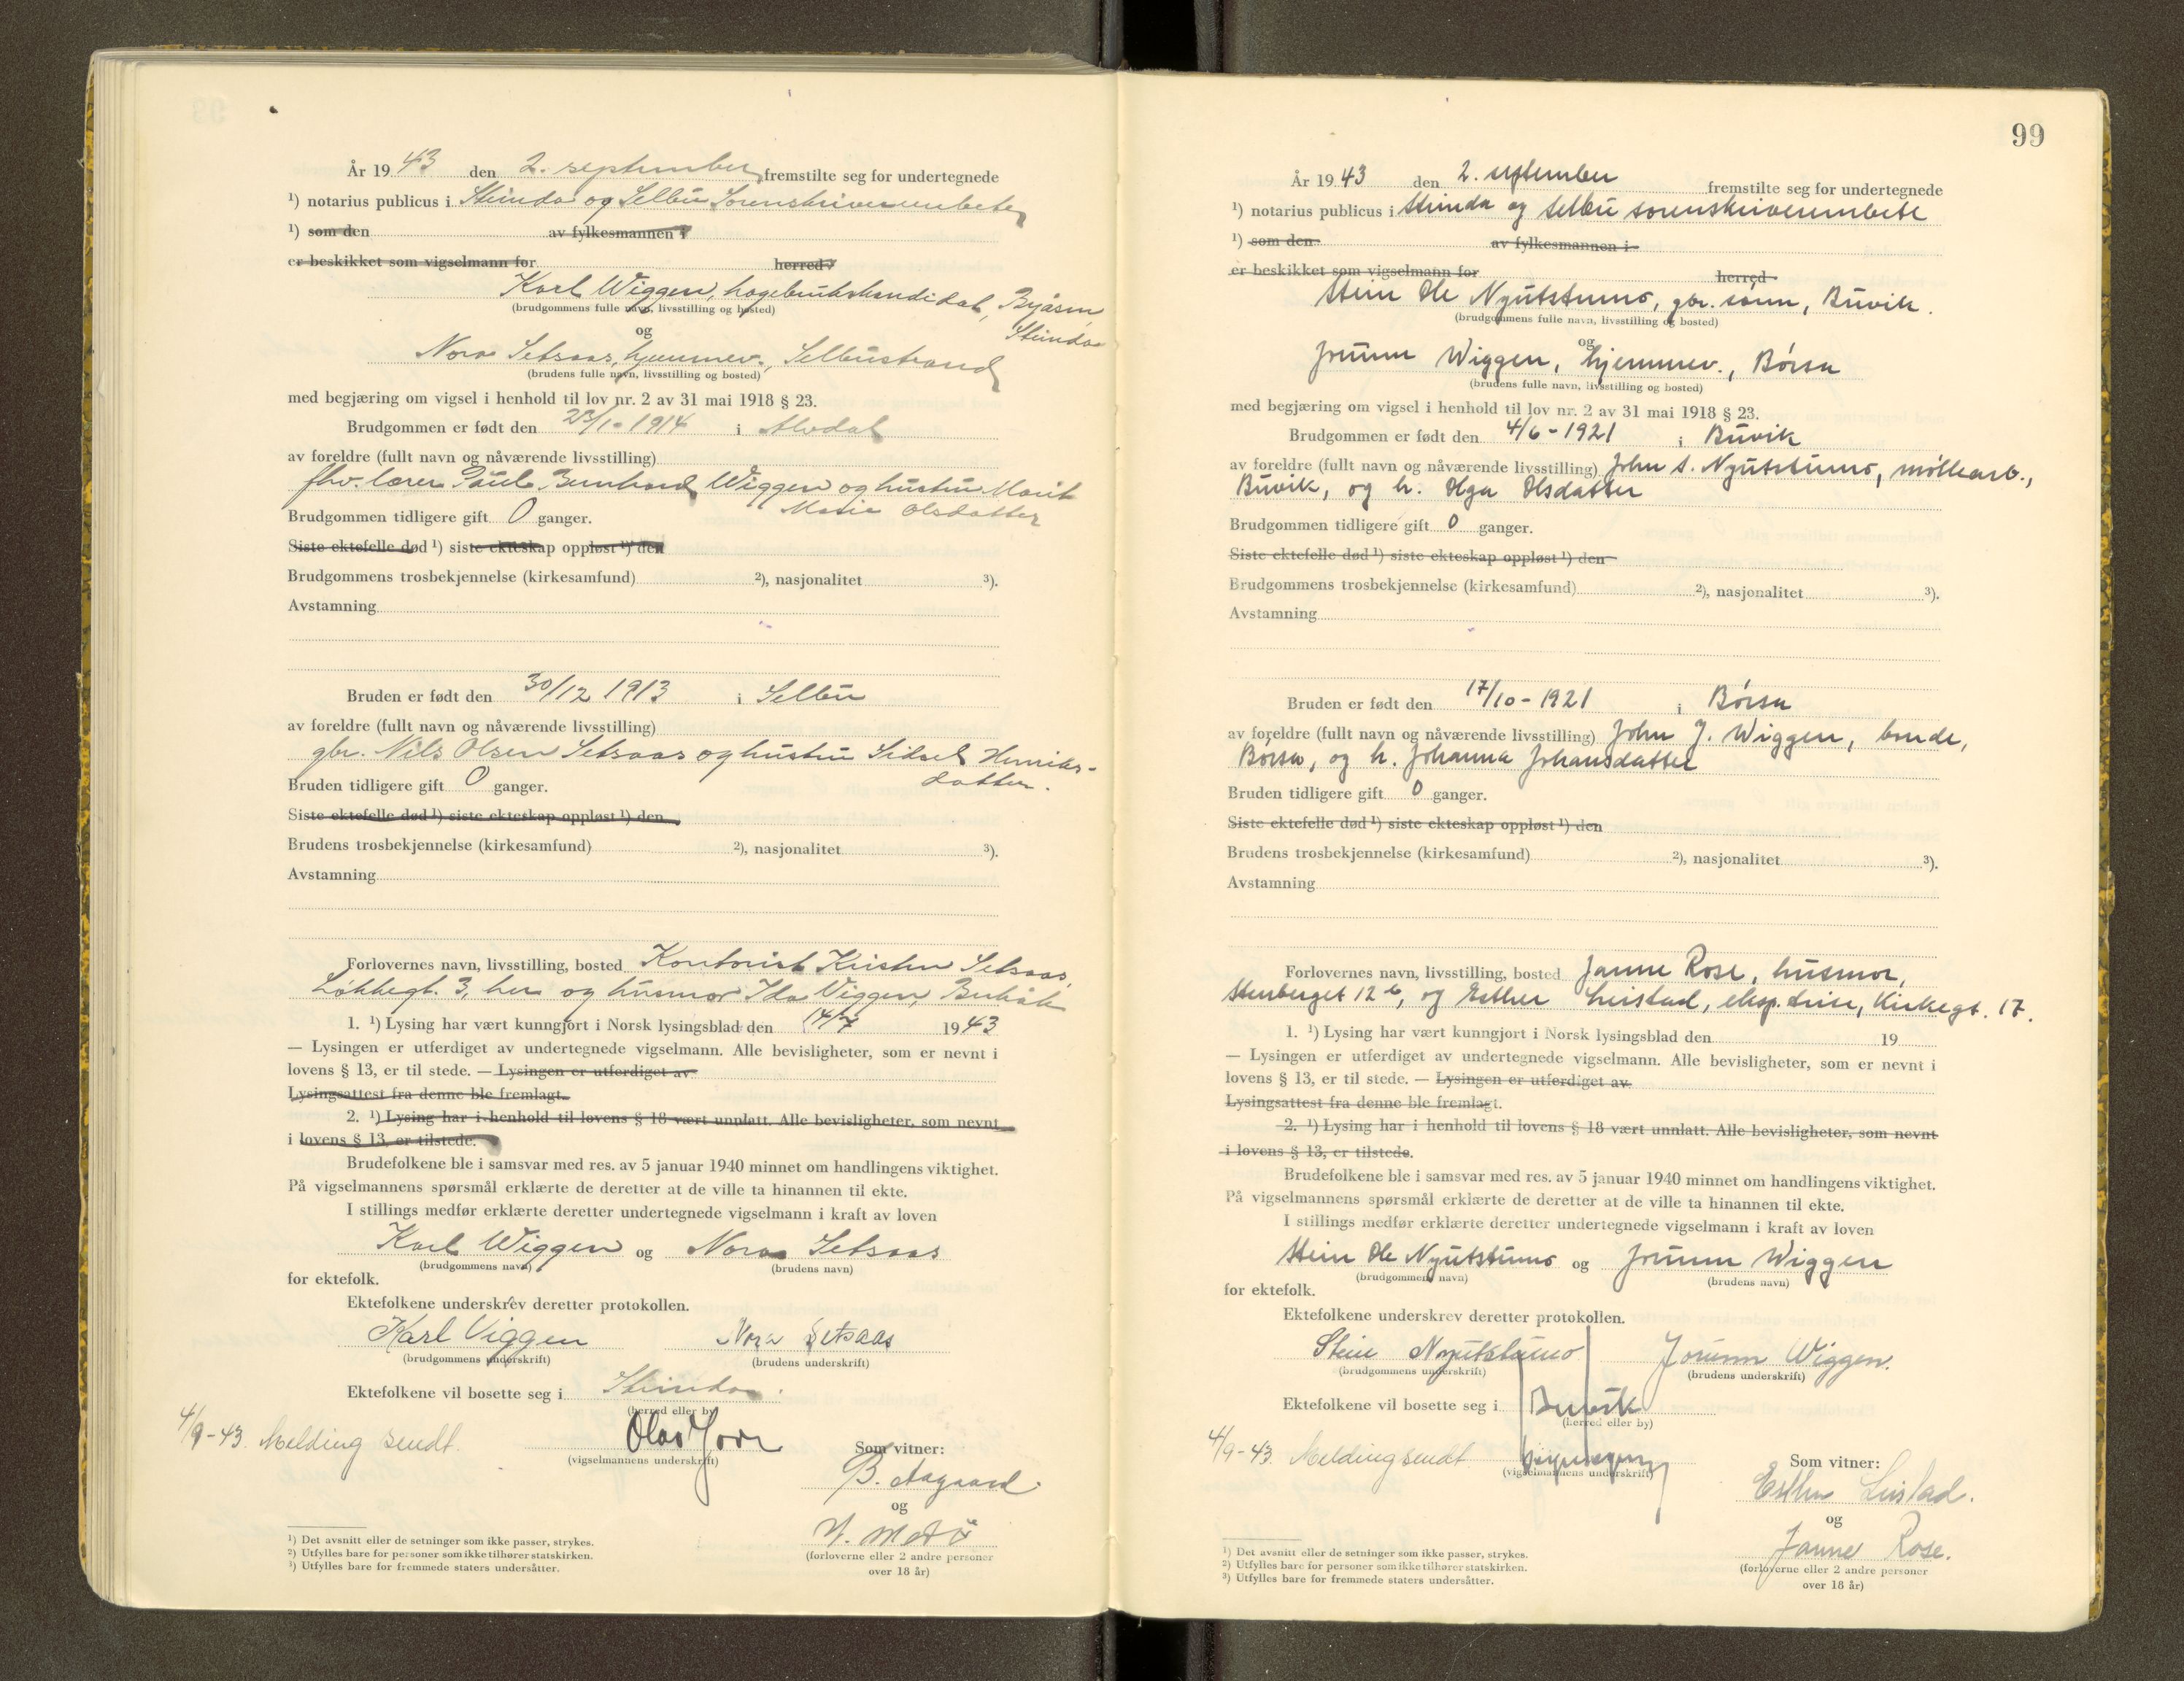 År 1943 den 2. september fremstilte seg for undertegnede
¹) notarius publicus i Strinda og Selbu Sorenskriverembete
¹) som den av fylkesmannen i
er beskikket som vigselmann for herred
Karl Wiggen, hagebrukskandidat, Byåsen
Strinda
(brudgommens fulle navn, livsstilling og bosted)
og
Nora Setsaas, hjemmev., Selbustrand
(brudens fulle navn, livsstilling og bosted)
med begjæring om vigsel i henhold til lov nr. 2 av 31 mai 1918 § 23.
Brudgommen er født den 23/1-1914 i Alvdal
av foreldre (fullt navn og nåværende livsstilling)
fhv. lærer Paul Bernhard Wiggen og hustru Marit
Marie Olsdatter
Brudgommen tidligere gift 0 ganger.
Siste ektefelle død ¹) siste ekteskap oppløst ¹) den
Brudgommens trosbekjennelse (kirkesamfund) ²), nasjonalitet ³).
Avstamning
Bruden er født den 30/12 1913 i Selbu
av foreldre (fullt navn og nåværende livsstilling)
gbr. Nils Olsen Setsaas og hustru Sidsel Henriks-
datter.
Bruden tidligere gift 0 ganger.
Siste ektefelle død ¹) siste ekteskap oppløst ¹) den
Brudens trosbekjennelse (kirkesamfund) ²), nasjonalitet ³).
Avstamning
Forlovernes navn, livsstilling, bosted Kontorist Kirsten Setsaas,
Løkkegt. 3, her og husmor Ida Wiggen,
1. ¹) Lysing har vært kunngjort i Norsk lysingsblad den 14/7 1943
— Lysingen er utferdiget av undertegnede vigselmann. Alle bevisligheter, som er nevnt i
lovens § 13, er til stede. — Lysingen er utferdiget av
Lysingsattest fra denne ble fremlagt.
2. ¹) Lysing har i henhold til lovens § 18 vært unnlatt. Alle bevisligheter, som nevnt
i lovens § 13, er tilstede.
Brudefolkene ble i samsvar med res. av 5 januar 1940 minnet om handlingens viktighet.
På vigselmannens spørsmål erklærte de deretter at de ville ta hinannen til ekte.
I stillings medfør erklærte deretter undertegnede vigselmann i kraft av loven
Karl Wiggen og Nora Setsaas
(brudgommens navn) (brudens navn)
for ektefolk.
Ektefolkene underskrev deretter protokollen.
Karl Viggen Nora Setsaas
(brudgommens underskrift) (brudens underskrift)
Ektefolkene vil bosette seg i Strinda.
(herred eller by)
4/9-43. Melding sendt. Olav
(vigselmannens underskrift)
Som vitner:
B. Aagaard.
og
(forloverne eller 2 andre personer
over 18 år)
¹) Det avsnitt eller de setninger som ikke passer, strykes.
²) Utfylles bare for personer som ikke tilhører statskirken.
³) Utfylles bare for fremmede staters undersåtter.
99
År 1943 den 2. september fremstilte seg for undertegnede
¹) notarius publicus i Strinda og Selbu sorenskriverembete
¹) som den av fylkesmannen i
er beskikket som vigselmann for herred
Stein Ole Nyutstumo, gbr. sønn, Buvik.
(brudgommens fulle navn, livsstilling og bosted)
og
Jorunn Wiggen, hjemmev., Børsa
(brudens fulle navn, livsstilling og bosted)
med begjæring om vigsel i henhold til lov nr. 2 av 31 mai 1918 § 23.
Brudgommen er født den 4/6-1921 i Buvik
av foreldre (fullt navn og nåværende livsstilling) John S. Nyutstumo, møllearb.,
Buvik, og h. Olga Olsdatter
Brudgommen tidligere gift 0 ganger.
Siste ektefelle død ¹) siste ekteskap oppløst ¹) den
Brudgommens trosbekjennelse (kirkesamfund) ²), nasjonalitet ³).
Avstamning
Bruden er født den 17/10-1921 i Børsa
av foreldre (fullt navn og nåværende livsstilling) John J. Wiggen, bonde,
Børsa, og h. Johanna Johansdatter
Bruden tidligere gift 0 ganger.
Siste ektefelle død ¹) siste ekteskap oppløst ¹) den
Brudens trosbekjennelse (kirkesamfund) ²), nasjonalitet ³).
Avstamning
Forlovernes navn, livsstilling, bosted Janne Rose, husmor,
Stenberget 12 b, og Esther Leistad, eksp.trise, Kirkegt. 17.
1. ¹) Lysing har vært kunngjort i Norsk lysingsblad den 19
— Lysingen er utferdiget av undertegnede vigselmann. Alle bevisligheter, som er nevnt i
lovens § 13, er til stede. — Lysingen er utferdiget av
Lysingsattest fra denne ble fremlagt.
2. ¹) Lysing har i henhold til lovens § 18 vært unnlatt. Alle bevisligheter, som nevnt
i lovens § 13, er tilstede.
Brudefolkene ble i samsvar med res. av 5 januar 1940 minnet om handlingens viktighet.
På vigselmannens spørsmål erklærte de deretter at de ville ta hinannen til ekte.
I stillings medfør erklærte deretter undertegnede vigselmann i kraft av loven
Stein Ole Nyutstumo og Jorunn Wiggen
(brudgommens navn) (brudens navn)
for ektefolk.
Ektefolkene underskrev deretter protokollen.
Stein Nyutstumo Jorunn Wiggen.
(brudgommens underskrift) (brudens underskrift)
Ektefolkene vil bosette seg i Buvik
(herred eller by)
4/9-43. Melding sendt
(vigselmannens underskrift)
Som vitner:
Esther Leistad.
og
Janne Rose.
(forloverne eller 2 andre personer
over 18 år)
¹) Det avsnitt eller de setninger som ikke passer, strykes.
²) Utfylles bare for personer som ikke tilhører statskirken.
³) Utfylles bare for fremmede staters undersåtter.